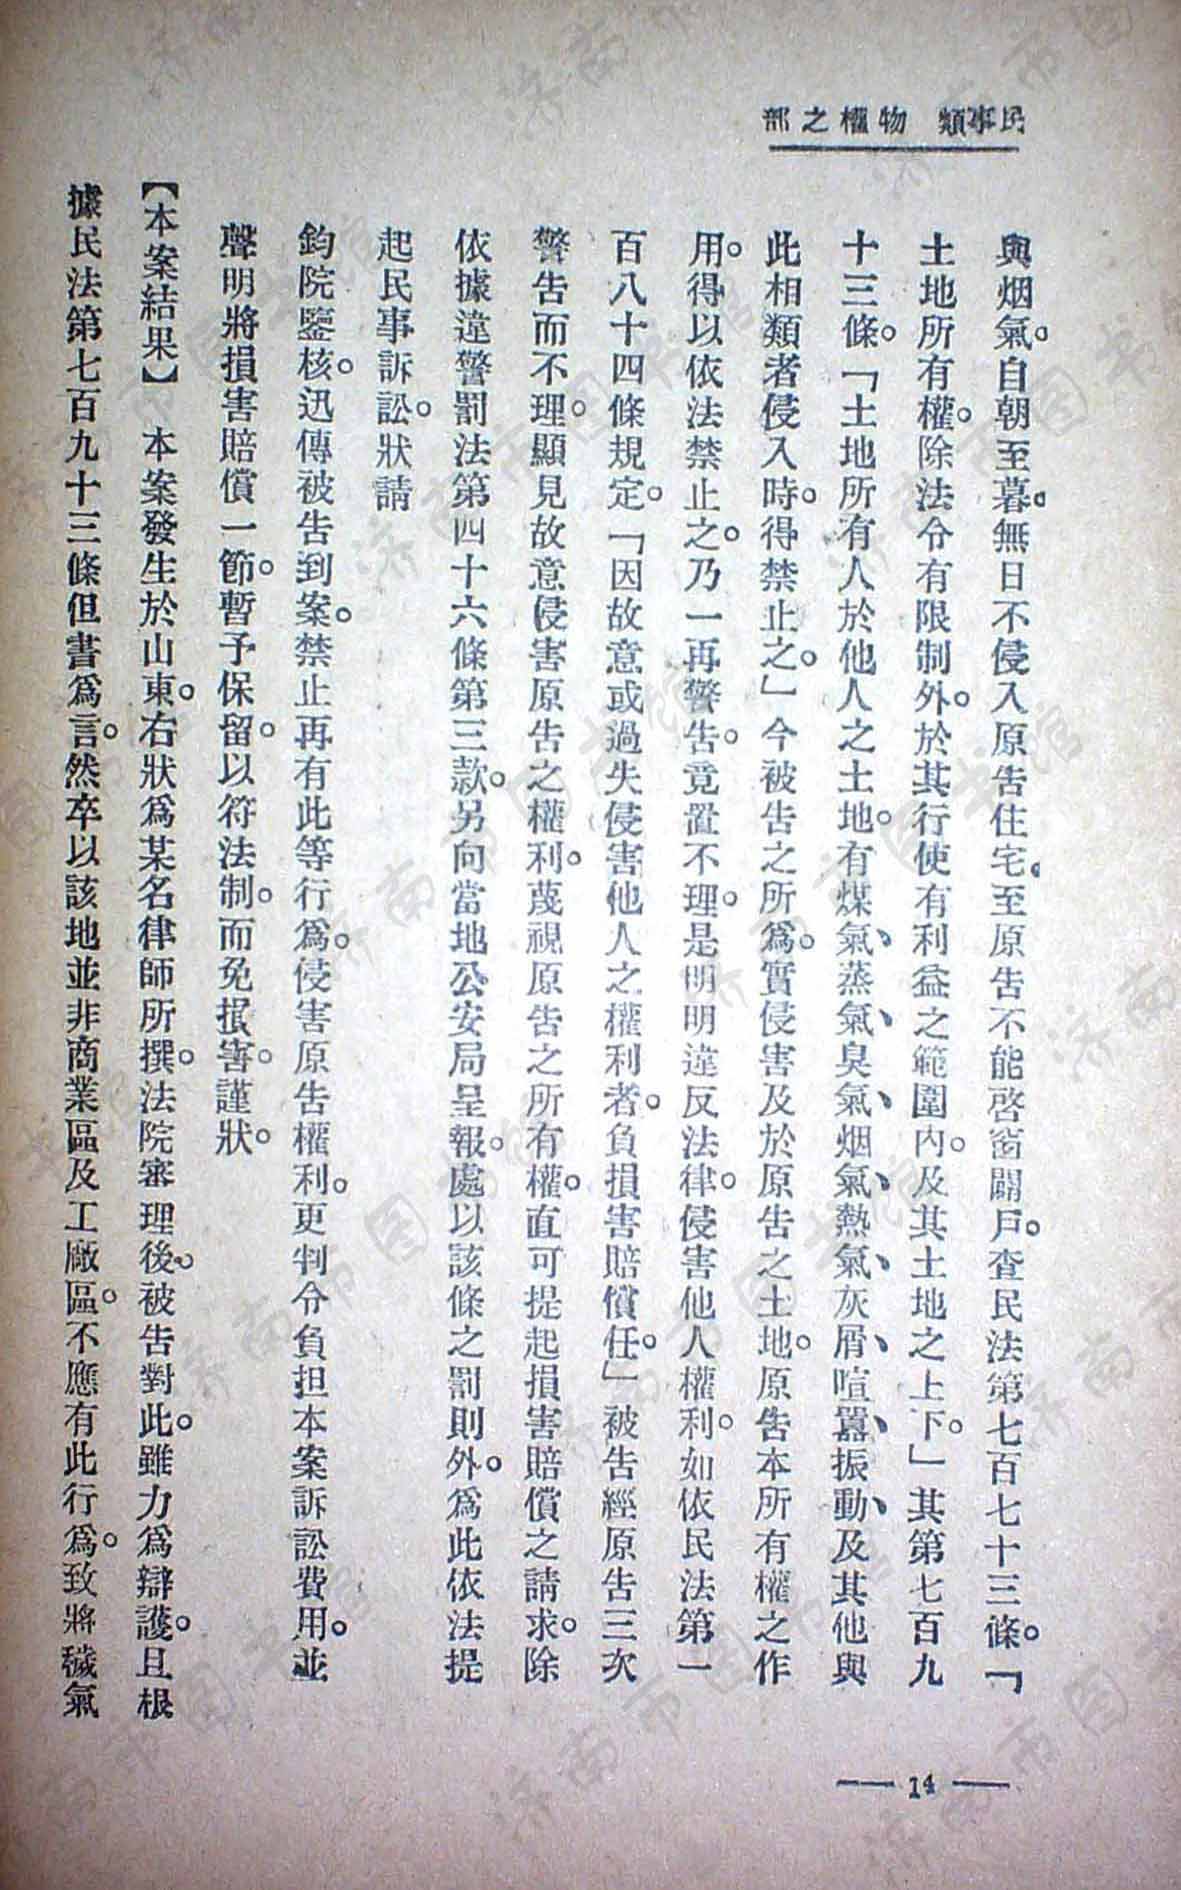 民事類　物權之部
與烟氣。自朝至暮。無日不侵入原告住宅。至原告不能啓窗闢戶。查民法第七百七十三條。「
土地所有權。除法令有限制外。於其行使有利益之範圍內。及其土地之上下。」其第七百九
十三條。「土地所有人於他人之土地。有煤氣、蒸氣、臭氣、烟氣、熱氣、灰屑、喧囂、振動、及其他與
此相類者侵入時。得禁止之。」今被告之所爲。實侵害及於原告之土地。原告本所有權之作
用。得以依法禁止之。乃一再警告。竟置不理。是明明違反法律。侵害他人權利。如依民法第一
百八十四條規定。「因故意或過失侵害他人之權利者。負損害賠償任。」被告經原告三次
警告而不理。顯見故意侵害原告之權利。蔑視原告之所有權。直可提起損害賠償之請求。除
依據違警罰法第四十六條第三款。另向當地公安局呈報。處以該條之罰則外。爲此依法提
起民事訴訟。狀請
鈞院鑒核。迅傳被告到案。禁止再有此等行爲。侵害原告權利。更判令負担本案訴訟費用。並
聲明將損害賠償一節。暫予保留。以符法制。而免損害。謹狀。
【本案結果】　本案發生於山東。右狀爲某名律師所撰。法院審理後。被告對此。雖力爲辯護。且根
據民法第七百九十三條但書爲言。然卒以該地並非商業區及工廠區。不應有此行爲。致將穢氣
— 14 —
济南市图书馆